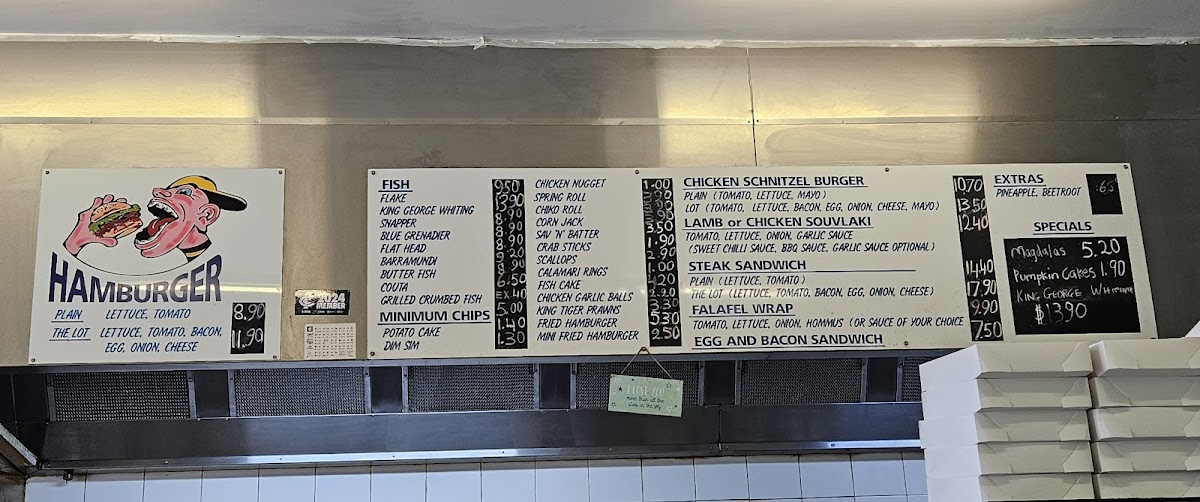 HAMBURGER
PLAIN LETTUCE, TOMATO 8.90
THE LOT LETTUCE, TOMATO, BACON, EGG, ONION, CHEESE 11.90
2024
MEMBER
FISH
FLAKE
KING GEORGE WHITING
SNAPPER
BLUE GRENADIER
FLAT HEAD
BARRAMUNDI
BUTTER FISH
COUTA
GRILLED CRUMBED FISH
MINIMUM CHIPS
POTATO CAKE
DIM SIM
9.50
13.90
8.90
8.90
8.90
9.20
8.90
6.50
EX 40
5.00
1.40
1.30
CHICKEN NUGGET
SPRING ROLL
CHIKO ROLL
CORN JACK
SAV 'N' BATTER
CRAB STICKS
SCALLOPS
CALAMARI RINGS
FISH CAKE
CHICKEN GARLIC BALLS
KING TIGER PRAWNS
FRIED HAMBURGER
MINI FRIED HAMBURGER
1.00
3.50
1.90
2.90
1.00
2.90
5.30
2.50
CHICKEN SCHNITZEL BURGER
PLAIN (TOMATO, LETTUCE, MAYO) 10.70
LOT (TOMATO, LETTUCE, BACON, EGG, ONION, CHEESE, MAYO) 13.50
LAMB or CHICKEN SOUVLAKI 12.40
TOMATO, LETTUCE, ONION, GARLIC SAUCE
(SWEET CHILLI SAUCE, BBQ SAUCE, GARLIC SAUCE OPTIONAL)
STEAK SANDWICH
PLAIN (LETTUCE, TOMATO) 14.40
THE LOT (LETTUCE, TOMATO, BACON, EGG, ONION, CHEESE) 17.90
FALAFEL WRAP 9.90
TOMATO, LETTUCE, ONION, HOMMUS (OR SAUCE OF YOUR CHOICE
EGG AND BACON SANDWICH 7.50
EXTRAS
PINEAPPLE, BEETROOT .65
SPECIALS
Magdalas 5.20
Pumpkin Cakes 1.90
KING GEORGE WHITING
$13.90
I LOVE YOU
more than all the
stars in the sky